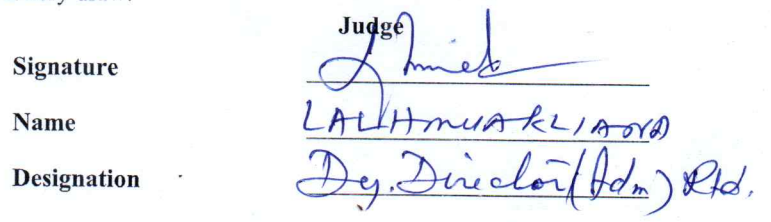 Judge
Signature
Name LALHMUAKLIANA
Designation Dy. Director (Adm) Rtd.